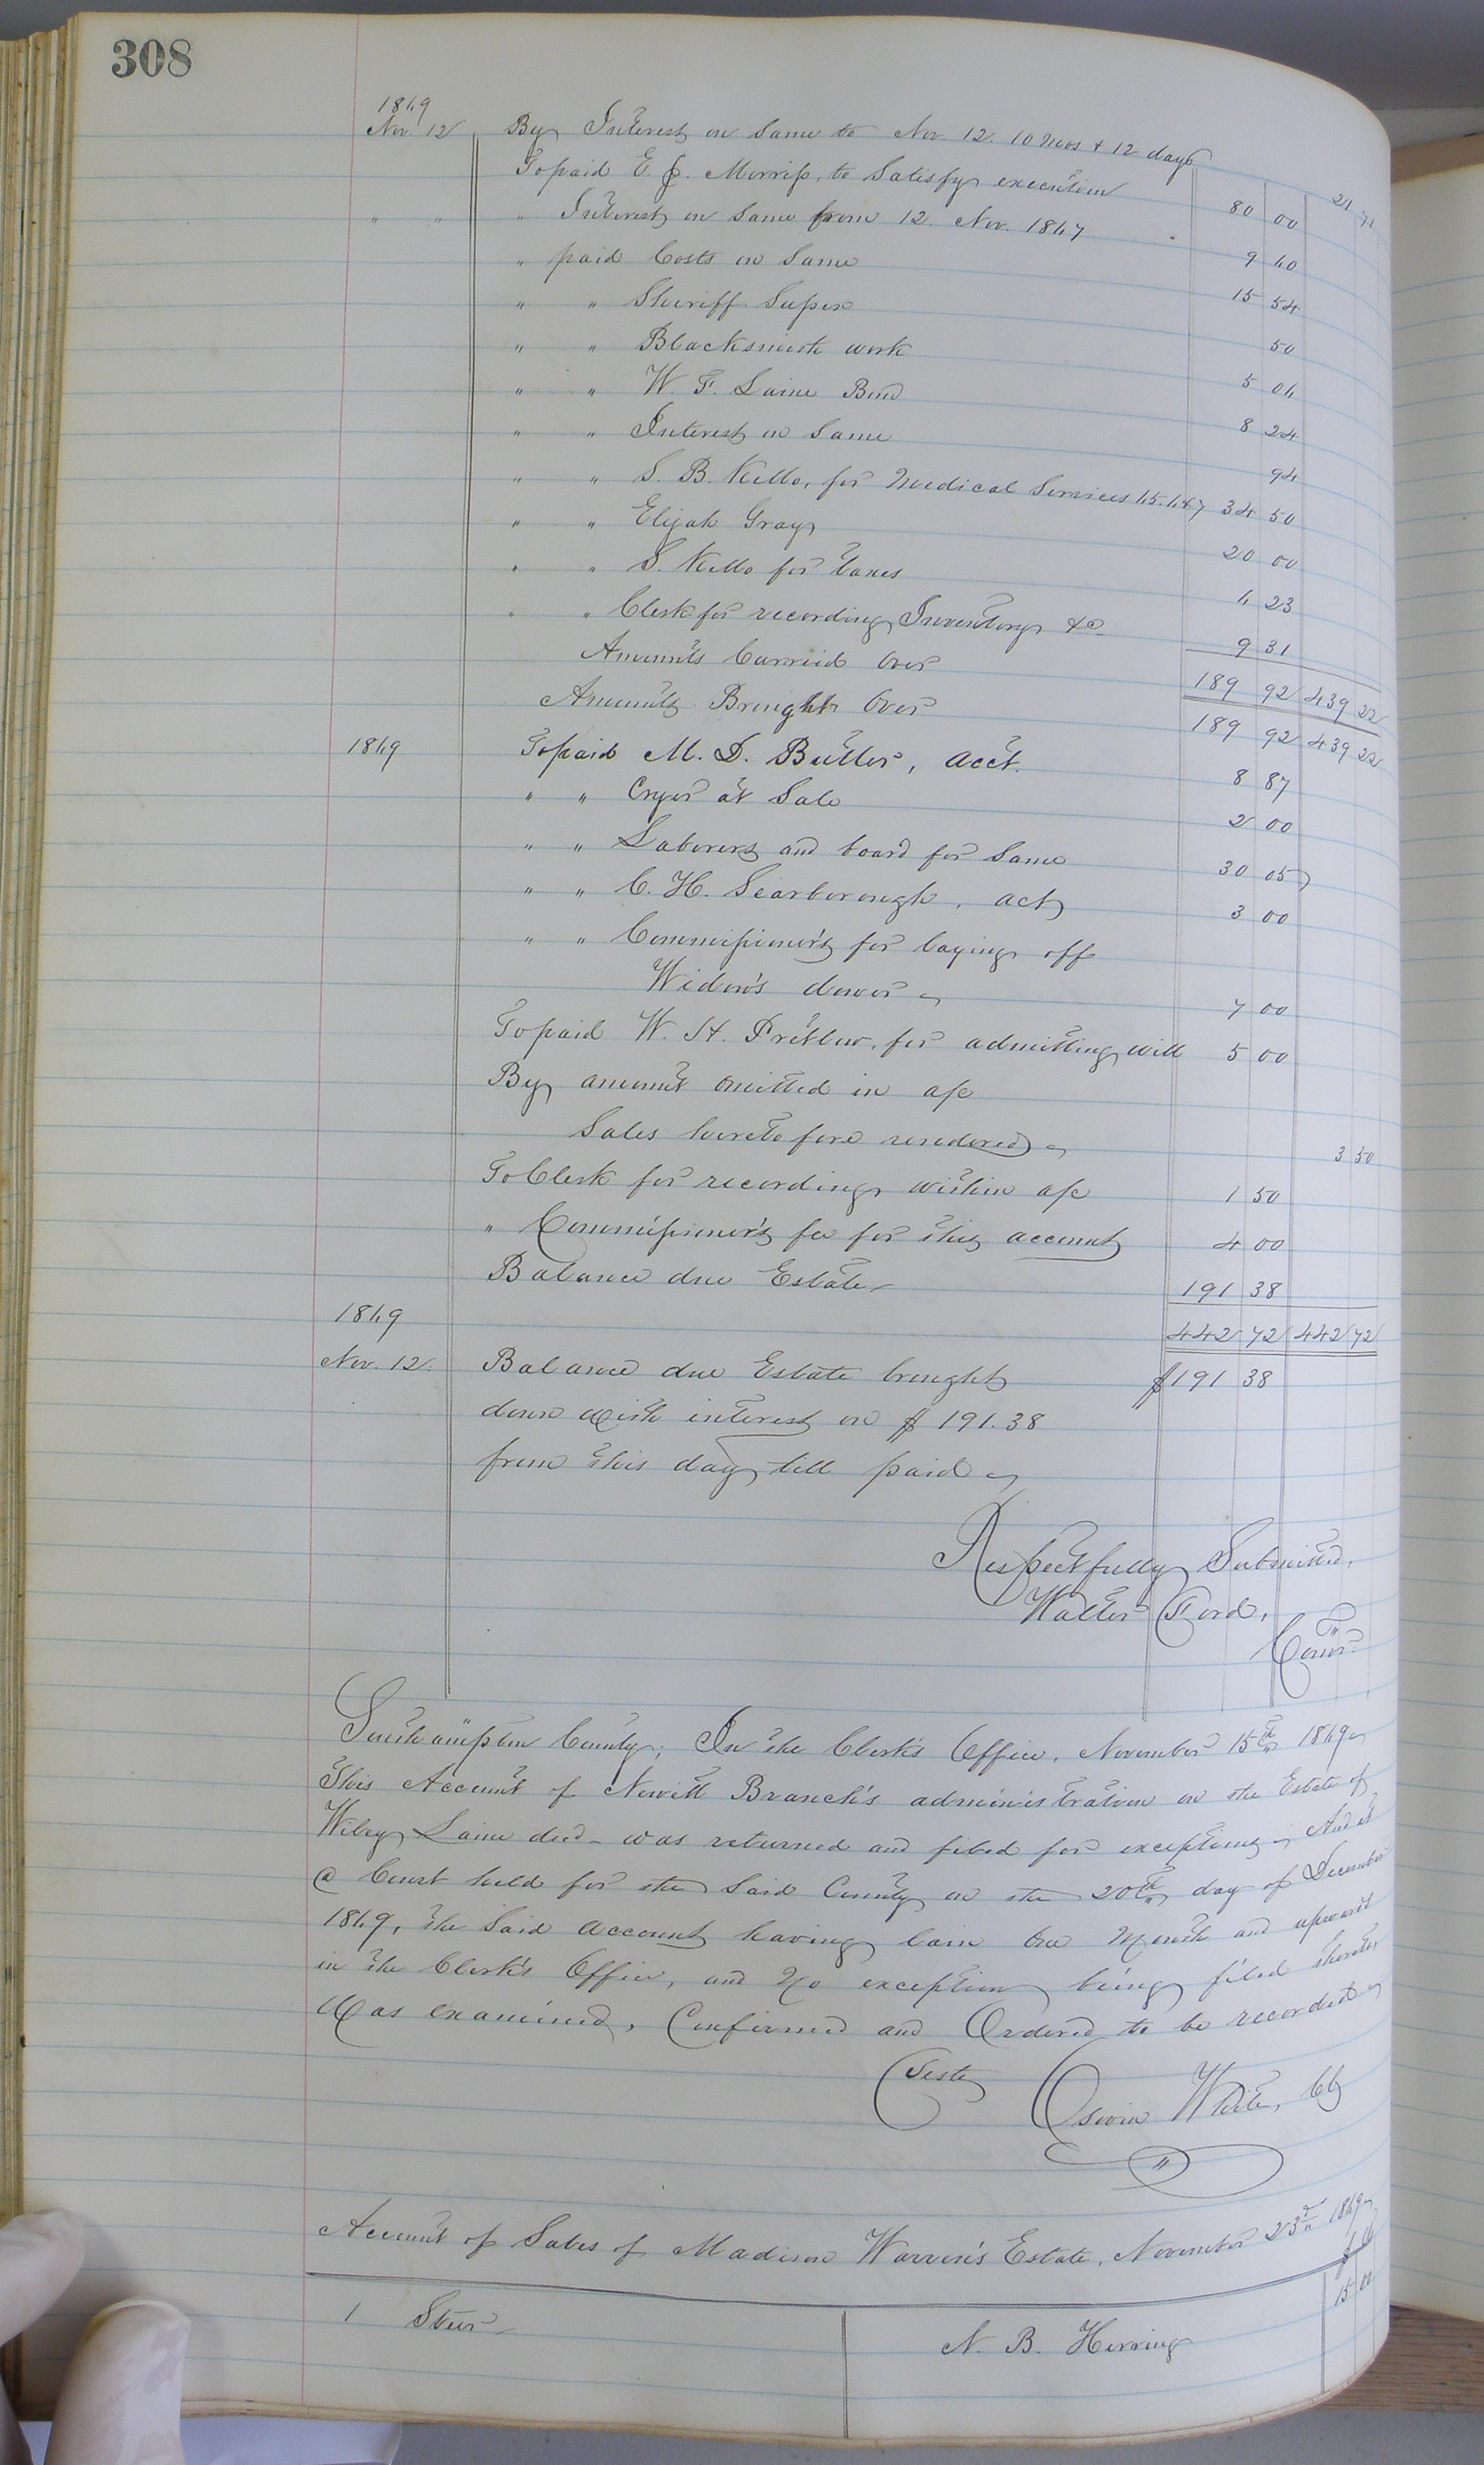 308
1869
Nov. 12 By Interest on Same to Nov. 12. 10 Mos + 12 days 21 71
To paid E. J. Morriss, to Satisfy execution 80 00
" " " Interest on Same from 12. Nov. 1867 9 60
" paid Costs on Same 15 54
" " Sheriff Super 50
" " Blacksmith work 5 06
" " W. F. Laine Bond 8 24
" " Interest on Same 94
" " S. B. Kello, for Medical Services 34 50
" " Elijah Gray 20 00
" " S. Kello for taxes 6 23
" " Clerk for recording Inventory &c 9 31
Amounts Carried Over 189 92 439 22
Amounts Brought Over 189 92 439 22
1869 To paid M. D. Butler, acct. 8 87
" " Cryer at Sale 2 00
" " Laborers and board for Same 30 05
" " C. H. Scarborough, act 3 00
" " Commissioner's for laying off
Widow's dower 7 00
To paid W. H. Pretlow, for admitting will 5 00
By amount omitted in a/c
Sales heretofore rendered 3 50
To Clerk for recording within a/c 1 50
" Commissioner's fee for this account 4 00
Balance due Estate 191 38
1869 442 72 442 72
Nov. 12. Balance due Estate brought $191 38
down with interest on $191.38
from this day till paid
Respectfully Submitted,
Walter Ford,
Comr.
Southampton County; In the Clerk's Office, November 15th 1869
This Account of Newitt Branch's administration on the Estate of
Wiley Laine decd was returned and filed for exceptions And at
a Court held for the Said County on the 20th day of December
1869, the Said account having lain one Month and upwards
in the Clerk's Office, and No exception being filed thereto
Was examined, Confirmed and Ordered to be recorded
Teste Oswin White, Clk
Account of Sales of Madison Warren's Estate, November 23d 1869
1 Steer N. B. Herring 15 00